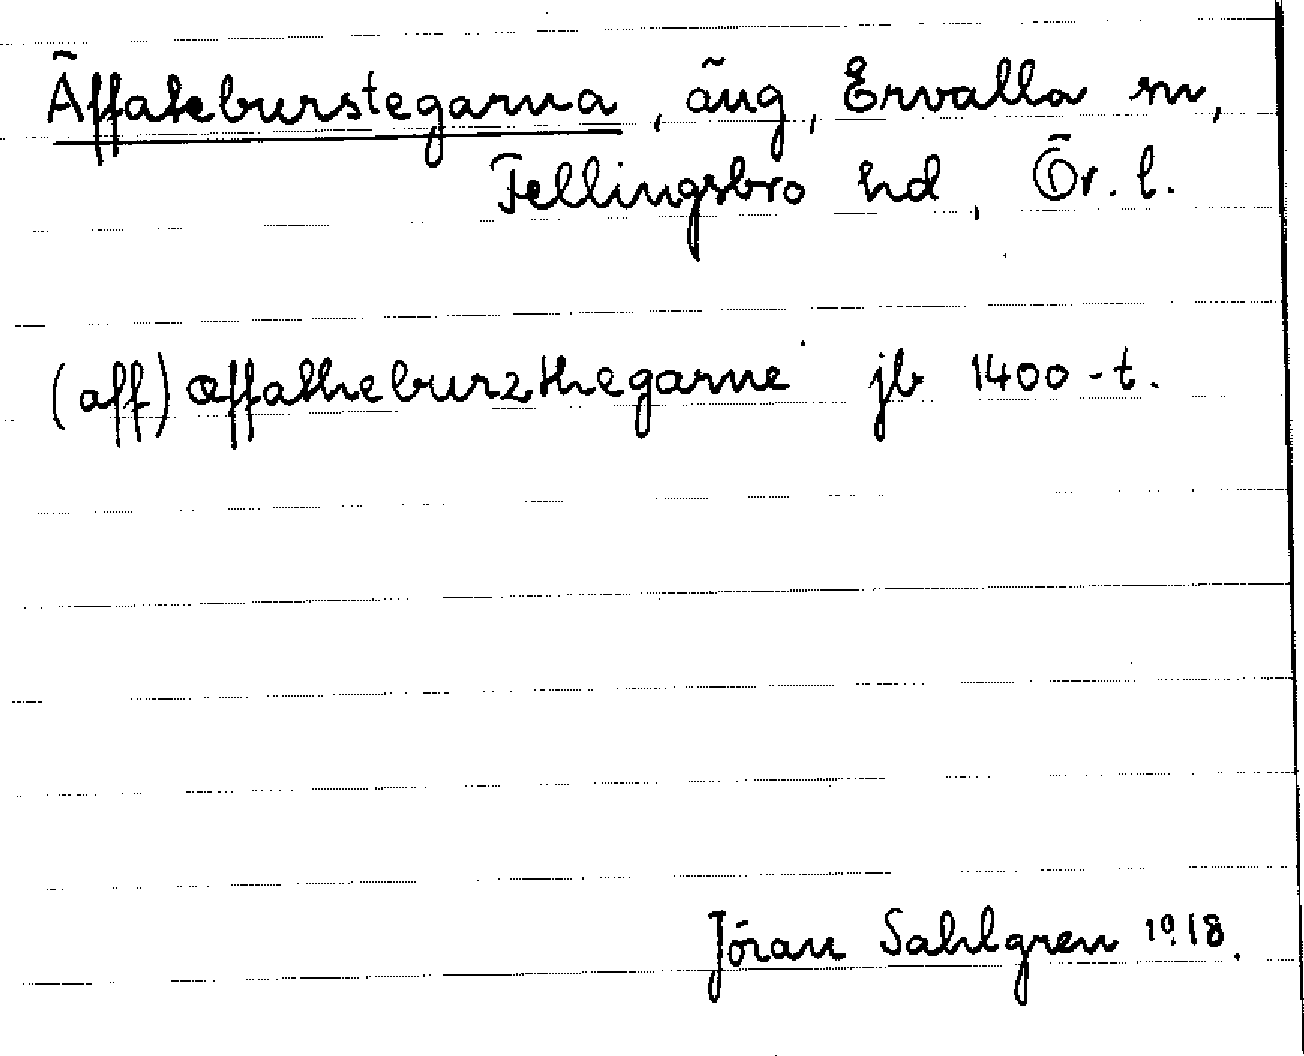 Äffateburstegarna, äng, Ervalla sn,
Fellingsbro hd, Ör. l.
(aff) æffatheburzthegarne jb 1400-t.
Jöran Sahlgren 1918.